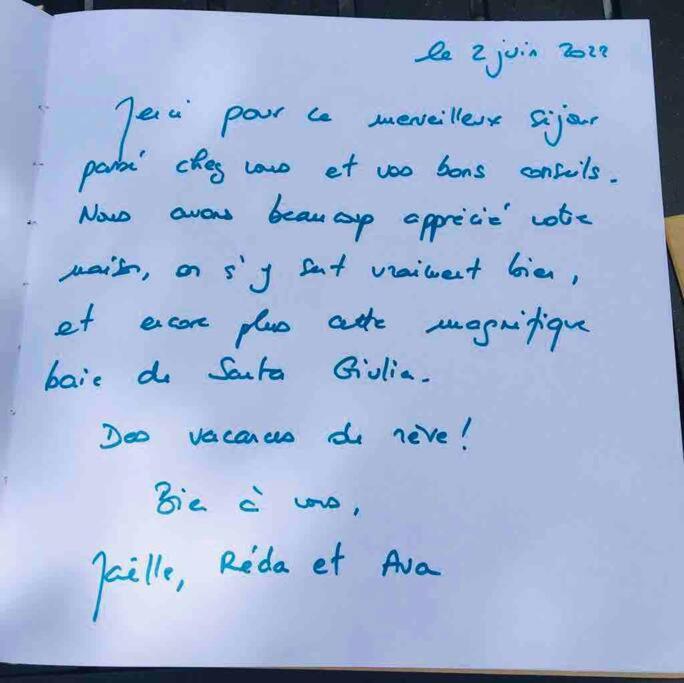 le 2 juin 2022
Merci pour ce merveilleux séjour
passé chez vous et vos bons conseils.
Nous avons beaucoup apprécié votre
maison, on s'y sent vraiment bien,
et encore plus cette magnifique
baie de Santa Giulia.
Des vacances de rêve !
Bien à vous,
Maëlle, Réda et Ava